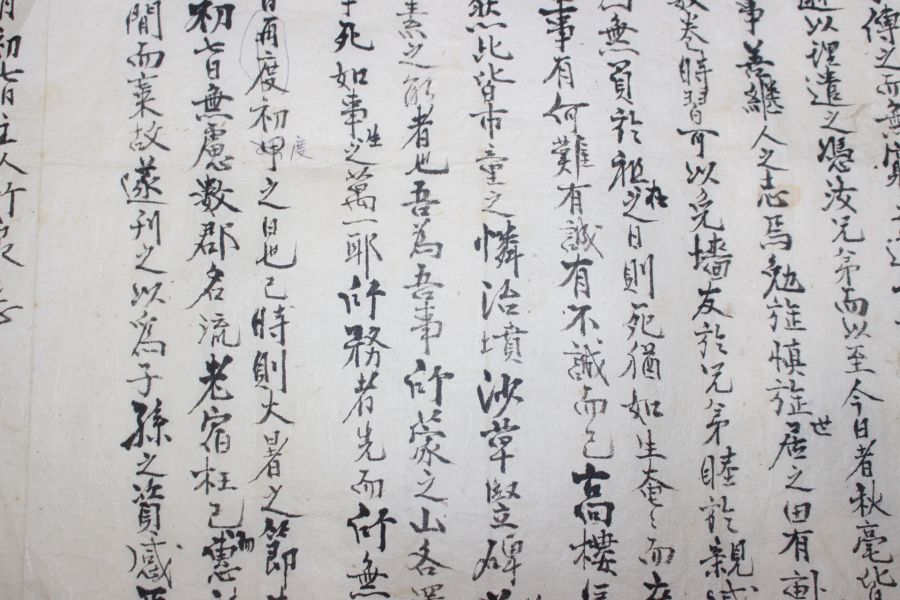 傳之而無
以理遣之憑汝兄弟而以至今日者秋毫皆
事善繼人之志焉勉旃愼旃居世之田有
數卷時習可以免墻友於兄弟睦於親
無負於祖在之日則死猶如生奄〻而
事有何難有誠有不誠而已高樓
然此皆市童之憐治墳沙草竪碑
素之能者也吾爲吾事所蒙之山各
死如事生之萬一耶所務者先而所無
日再度初甲度之日也已時則大暑之節
初七日無慮數郡名流老宿枉已
間而棄故遂刊之以爲子孫之資感
初七日主人所